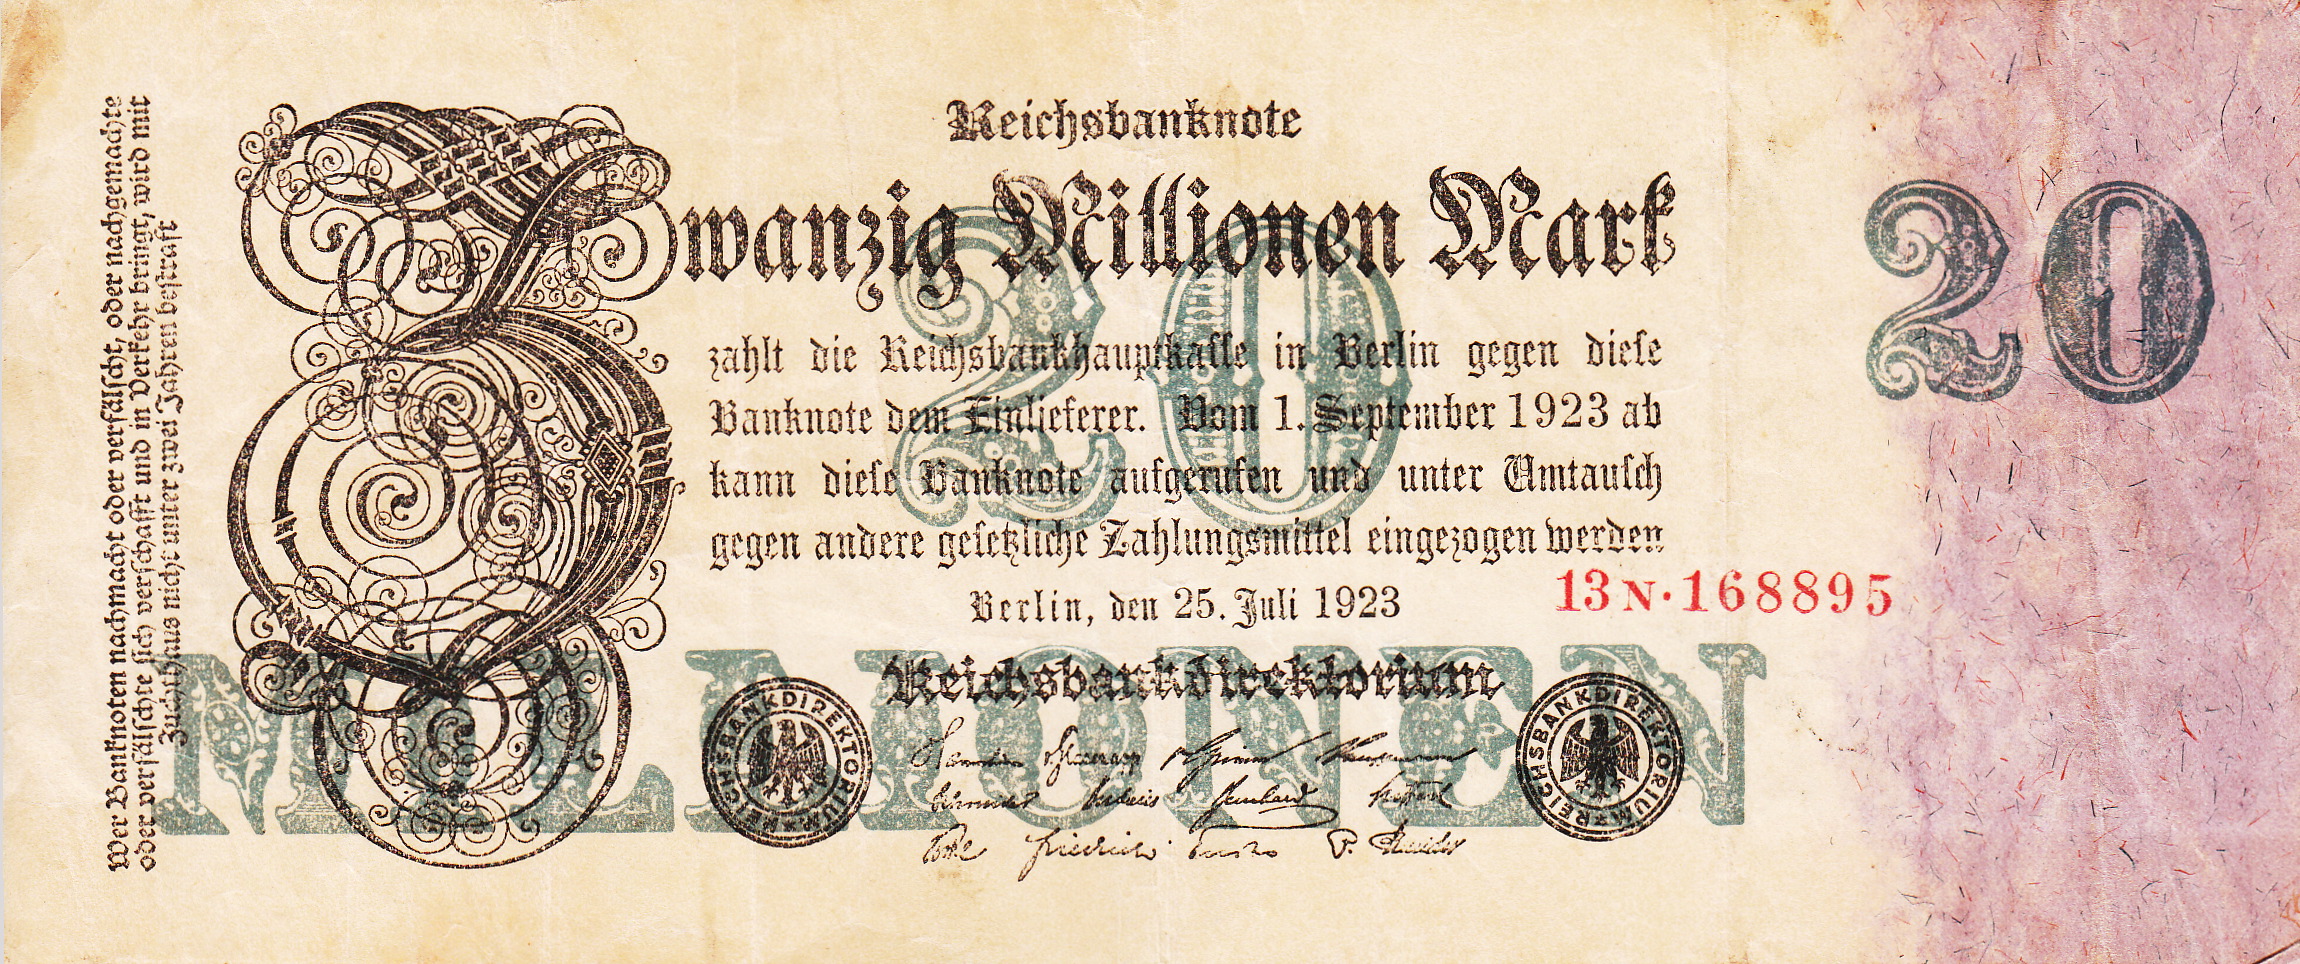 Reichsbanknote
Zwanzig Millionen Mark
20
zahlt die Reichsbankhauptkasse in Berlin gegen diese
Banknote dem Einlieferer. Vom 1. September 1923 ab
kann diese Banknote aufgerufen und unter Umtausch
gegen andere gesetzliche Zahlungsmittel eingezogen werden
13N·168895
Berlin, den 25. Juli 1923
Reichsbankdirektorium
MILLIONEN
REICHSBANKDIREKTORIUM
REICHSBANKDIREKTORIUM
20
Wer Banknoten nachmacht oder verfälscht, oder nachgemachte
oder verfälschte sich verschafft und in Verkehr bringt, wird mit
Zuchthaus nicht unter zwei Jahren bestraft